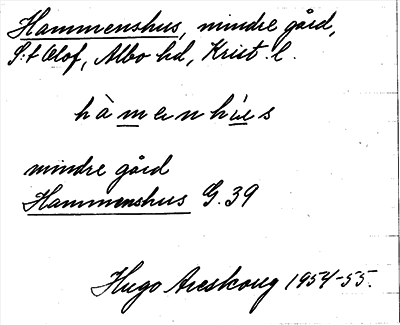 Hammenshus, mindre gård,
S:t Olof, Albo hd, Krist. l.
hàmenhús
mindre gård
Hammenshus G. 39
Hugo Areskoug 1954-55.